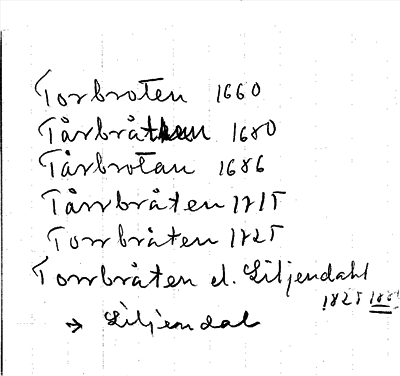 Torbroten 1660
Tårbråtten 1680
Tårbrotan 1686
Tårrbråten 1715
Torrbråten 1725
Torrbråten el. Liljendahl
1825
→ Liljendal